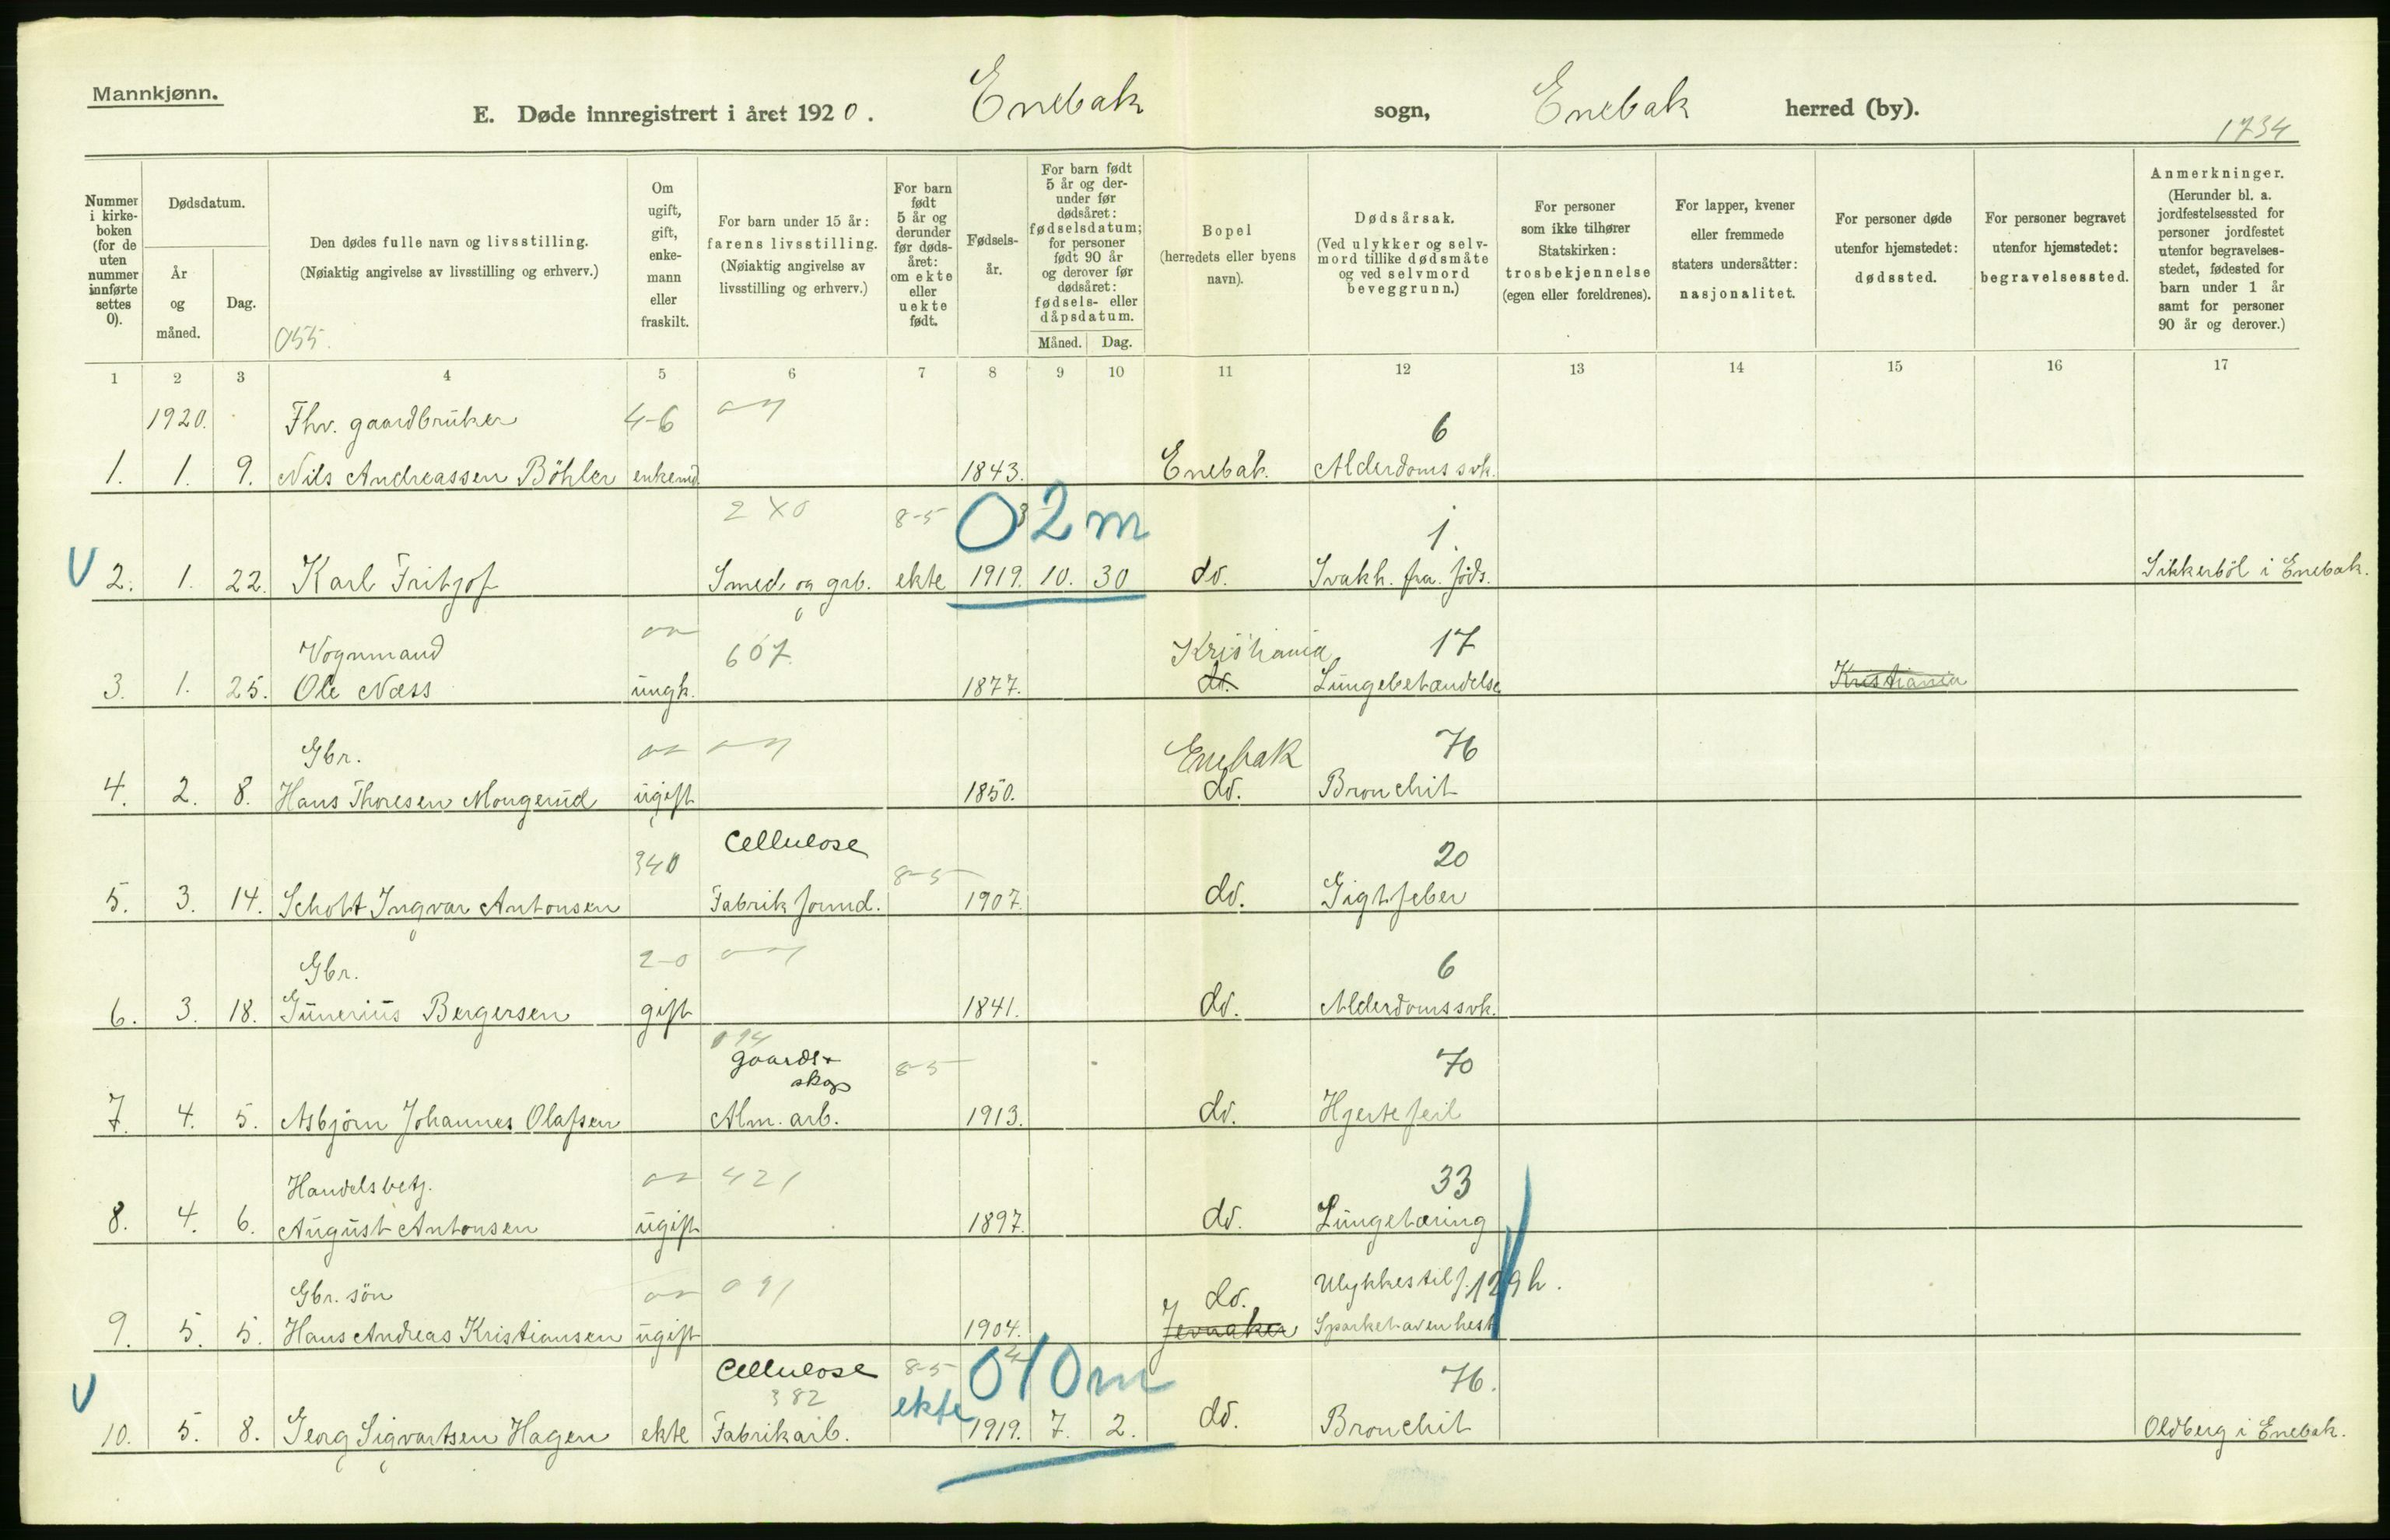 Mannkjønn.
E. Døde innregistrert i året 1920. Enebak sogn, Enebak herred (by).
1734
Nummer i kirkeboken (for de uten nummer innførte settes 0).
Dødsdatum.
År og måned.
Dag.
Den dødes fulle navn og livsstilling.
(Nøiaktig angivelse av livsstilling og erhverv.)
055.
Om ugift, gift, enkemann eller fraskilt.
For barn under 15 år: farens livsstilling.
(Nøiaktig angivelse av livsstilling og erhverv.)
For barn født 5 år og derunder før dødsåret: om ekte eller uekte født.
Fødselsår.
For barn født 5 år og derunder før dødsåret: fødselsdatum; for personer født 90 år og derover før dødsåret: fødsels- eller dåpsdatum.
Måned. Dag.
Bopel (herredets eller byens navn).
Dødsårsak.
(Ved ulykker og selvmord tillike dødsmåte og ved selvmord beveggrunn.)
For personer som ikke tilhører Statskirken: trosbekjennelse (egen eller foreldrenes).
For lapper, kvener eller fremmede staters undersåtter: nasjonalitet.
For personer døde utenfor hjemstedet: dødssted.
For personer begravet utenfor hjemstedet: begravelsessted.
Anmerkninger.
(Herunder bl. a. jordfestelsessted for personer jordfestet utenfor begravelsesstedet, fødested for barn under 1 år samt for personer 90 år og derover.)
1 2 3 4 5 6 7 8 9 10 11 12 13 14 15 16 17
1920. Fhv. gaardbruker 4-6 6
1. 1. 9. Nils Andreassen Böhler enkemd. 1843. Enebak. Alderdomssvk.
2 X0 8-5 02m 1.
V 2. 1. 22. Karl Fritjof Smed og grb. ekte 1919. 10. 30 do. Svakh. fra föds. Sikkerböl i Enebak.
Vognmand 607. Kristiania 17
3. 1. 25. Ole Næss ungk. 1877. do. Lungebetændelse Kristiania
Gbr. Enebak 76
4. 2. 8. Hans Thoresen Mongerud ugift 1850. do. Bronchit
340 Cellulose 8-5 20
5. 3. 14. Scholt Ingvar Antonsen Fabrikformd. 1907. do. Gigtfeber
Gbr. 2-0 6
6. 3. 18. Gunerius Bergersen gift 1841. do. Alderdomssvk.
094 gaards + skogs 8-5 70
7. 4. 5. Asbjörn Johannes Olafsen Alm. arb. 1913. do. Hjertefeil
Handelsbetj. 421 33
8. 4. 6. August Antonsen ugift 1897. do. Lungetæring
Gbr. sön 091 do. Ulykkestilf. 129h.
9. 5. 5. Hans Andreas Kristiansen ugift 1904. Jevnaker Sparket av en hest
Cellulose 382 8-5 010m 76.
V 10. 5. 8. Georg Sigvartsen Hagen ekte Fabrikarb. ekte 1919. 7. 2. do. Bronchit Oldberg i Enebak.